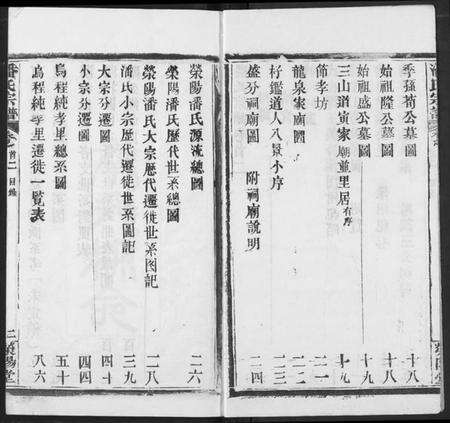 季孫荀公墓圖 十八
始祖隆公墓圖 十八
始祖盛公墓圖 十九
三山道寅家廟並里居有序 十九
節孝坊 二一
龍泉家廟圖 二二
杍鑑道人八景小序 二三
盛分祠廟圖 附祠廟說明 二四
潘氏宗譜
卷首二 目錄
二 滎陽堂
滎陽潘氏源流總圖 二六
滎陽潘氏歷代世系總圖
滎陽潘氏大宗歷代遷徙世系图記 二八
潘氏小宗歷代遷徙世系圖記 三九
大宗分遷圖 四十
小宗分遷圖 四四
烏程純孝里總系圖 五十
烏程純孝里遷徙一覧表 八六